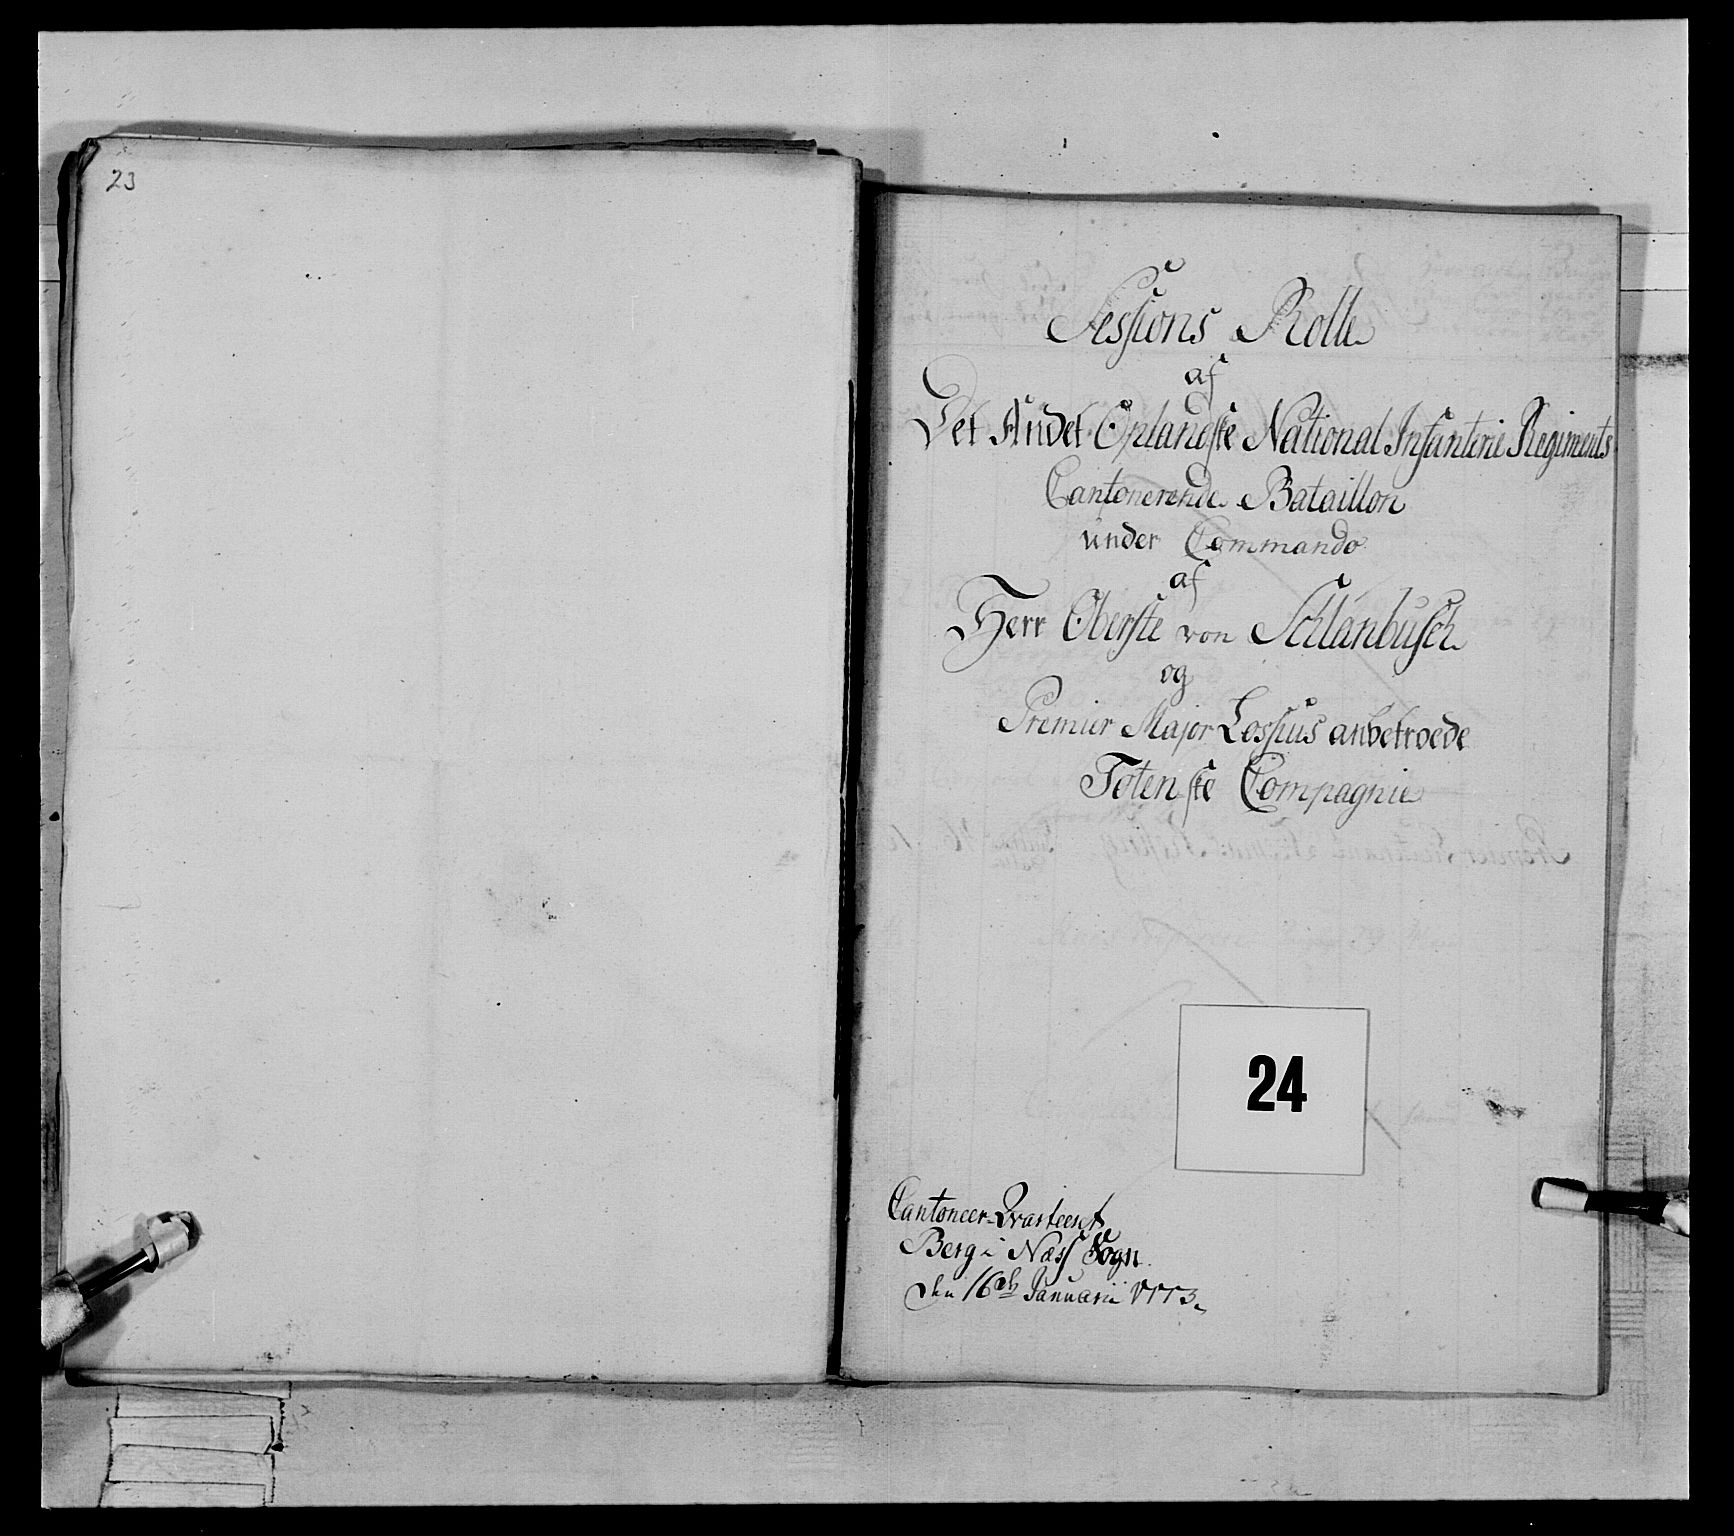 23
Sessions Rolle
af
Det Andet Oplandske National Infanterie Regiments
Cantonerende Bataillon
under Commando
af
Herr Oberste von Schlanbusch
og
Premier Major Lossius anbetroede
Totenske Compagnie
24
Cantoneer-Qvarteert
Berg i Næss Sogn
den 16de Januarii 1773